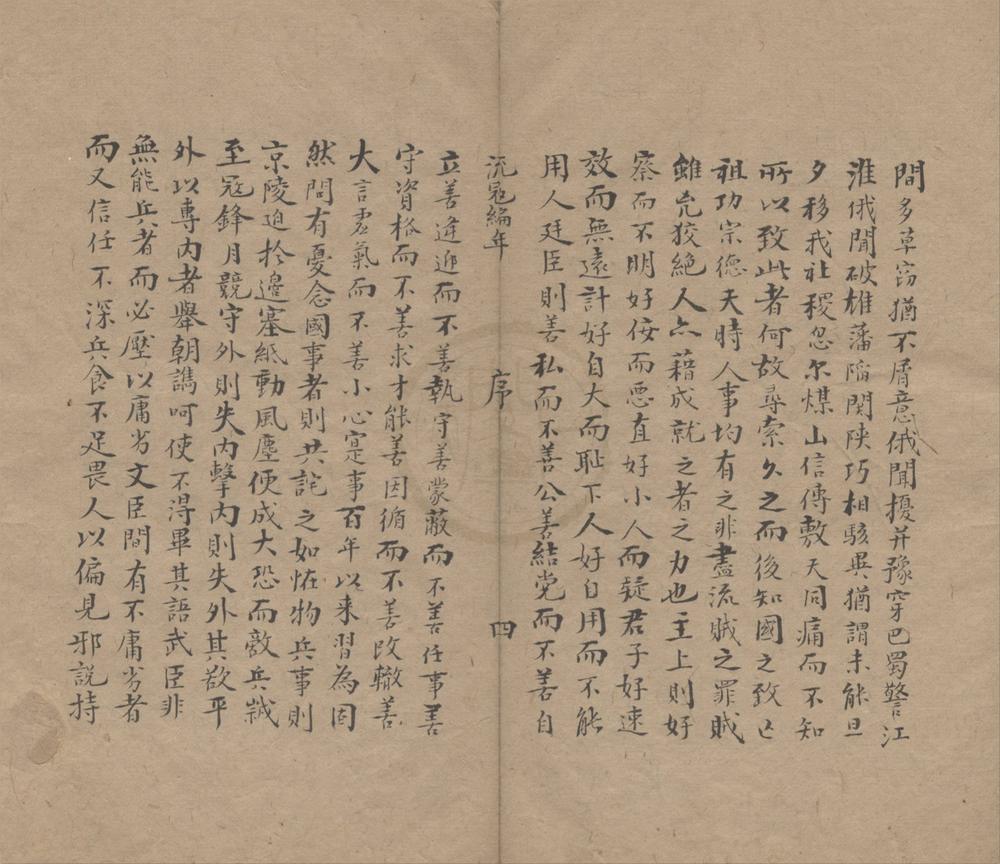 間多草窃猶不屑意俄聞擾并豫穿巴蜀警江
淮俄聞破雄藩陷関陕巧相駭異猶謂未能旦
夕移我社稷忽尔煤山信傳敷天同痛而不知
所以致此者何故尋索久之而後知國之致亡
祖功宗德天時人事均有之非盡流賊之罪賊
雖兇狡絶人亦藉成就之者之力也主上則好
察而不明好佞而悪直好小人而疑君子好速
效而無遠計好自大而耻下人好自用而不能
用人廷臣則善私而不善公善結党而不善自
流寇編年 序 四
立善逢迎而不善執守善蒙蔽而不善任事善
守資格而不善求才能善因循而不善改轍善
大言虚氣而不善小心寔事百年以来習為固
然間有憂念國事者則共詫之如怪物兵事則
京陵迫於邉塞紙動風塵便成大恐而敵兵誠
至寇鋒月競守外則失内擊内則失外其欲平
外以專内者舉朝譙呵使不得畢其語武臣非
無能兵者而必壓以庸劣文臣間有不庸劣者
而又信任不深兵食不足畏人以偏見邪説持